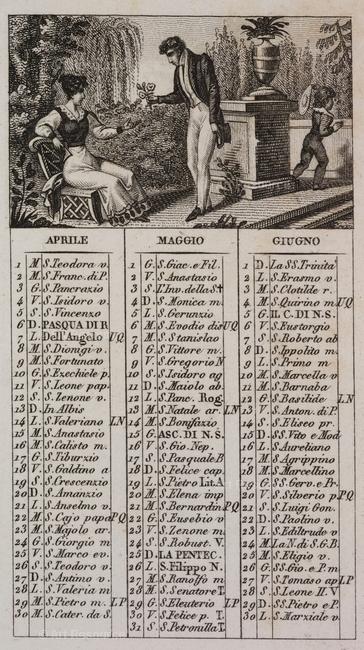 APRILE
1 M S. Teodora v.
2 M S. Franc. di P.
3 G S. Pancrazio
4 V S. Isidoro v.
5 S S. Vincenzo
6 D PASQUA DI R
7 L Dell'Angelo UQ
8 M S. Dionigi v.
9 M S. Fortunato
10 G S. Ezechiele p.
11 V S. Leone pap.
12 S S. Zenone v.
13 D In Albis
14 L S. Valeriano LN
15 M S. Anastasio
16 M S. Calisto m.
17 G S. Tiburzio
18 V S. Galdino a
19 S S. Crescenzio
20 D S. Amanzio
21 L S. Anselmo v.
22 M S. Cajo papa PQ
23 M S. Majolo ar.
24 G S. Giorgio m
25 V S. Marco ev.
26 S S. Teodoro v.
27 D S. Antimo v.
28 L S. Valeria m
29 M S. Pietro m. LP
30 M S. Cater. da S.
MAGGIO
1 G S. Giac. e Fil.
2 V S. Anastasio
3 S S. L'Inv. della S. †
4 D S. Monica m.
5 L S. Gerunzio
6 M S. Evodio dis UQ
7 M S. Stanislao
8 G S. Vittore m.
9 V S. Gregorio N
10 S S. Isidoro ag
11 D S. Maiolo ab.
12 L S. Panc. Rog.
13 M S. Natale ar. LN
14 M S. Bonifazio
15 G ASC. DI N. S.
16 V S. Gio. Nep.
17 S S. Pasquale B
18 D S. Felice cap.
19 L S. Pietro Lit. A
20 M S. Elena imp
21 M S. Bernardin PQ
22 G S. Eusebio v
23 V S. Zenone m.
24 S S. Robust. V.
25 D LA PENTEC.
26 L S. Filippo N.
27 M S. Ranolfo m
28 M S. Senatore T.
29 G S. Eleuterio LP
30 V S. Felice p. T.
31 S S. Petronilla T.
GIUGNO
1 D La SS. Trinita'
2 L S. Erasmo v.
3 M S. Clotilde r.
4 M S. Quirino m UQ
5 G IL C. DI N. S.
6 V S. Eustorgio
7 S S. Roberto ab
8 D S. Ippolito m.
9 L S. Primo m
10 M S. Marcella v
11 M S. Barnaba
12 G S. Basilide LN
13 V S. Anton. di P.
14 S S. Eliseo pr.
15 D SS. Vito e Mod
16 L S. Aureliano
17 M S. Agrippina
18 M S. Marcellino
19 G SS. Gerv. e Pr.
20 V S. Silverio p. PQ
21 S S. Luigi Gon.
22 D S. Paolino v.
23 L S. Ediltrudo v
24 M La N. di S. G. B.
25 M S. Eligio v.
26 G SS. Gio. e P. m
27 V S. Tomaso ap LP
28 S S. Leone II. V
29 D SS. Pietro e P.
30 L S. Marziale v.